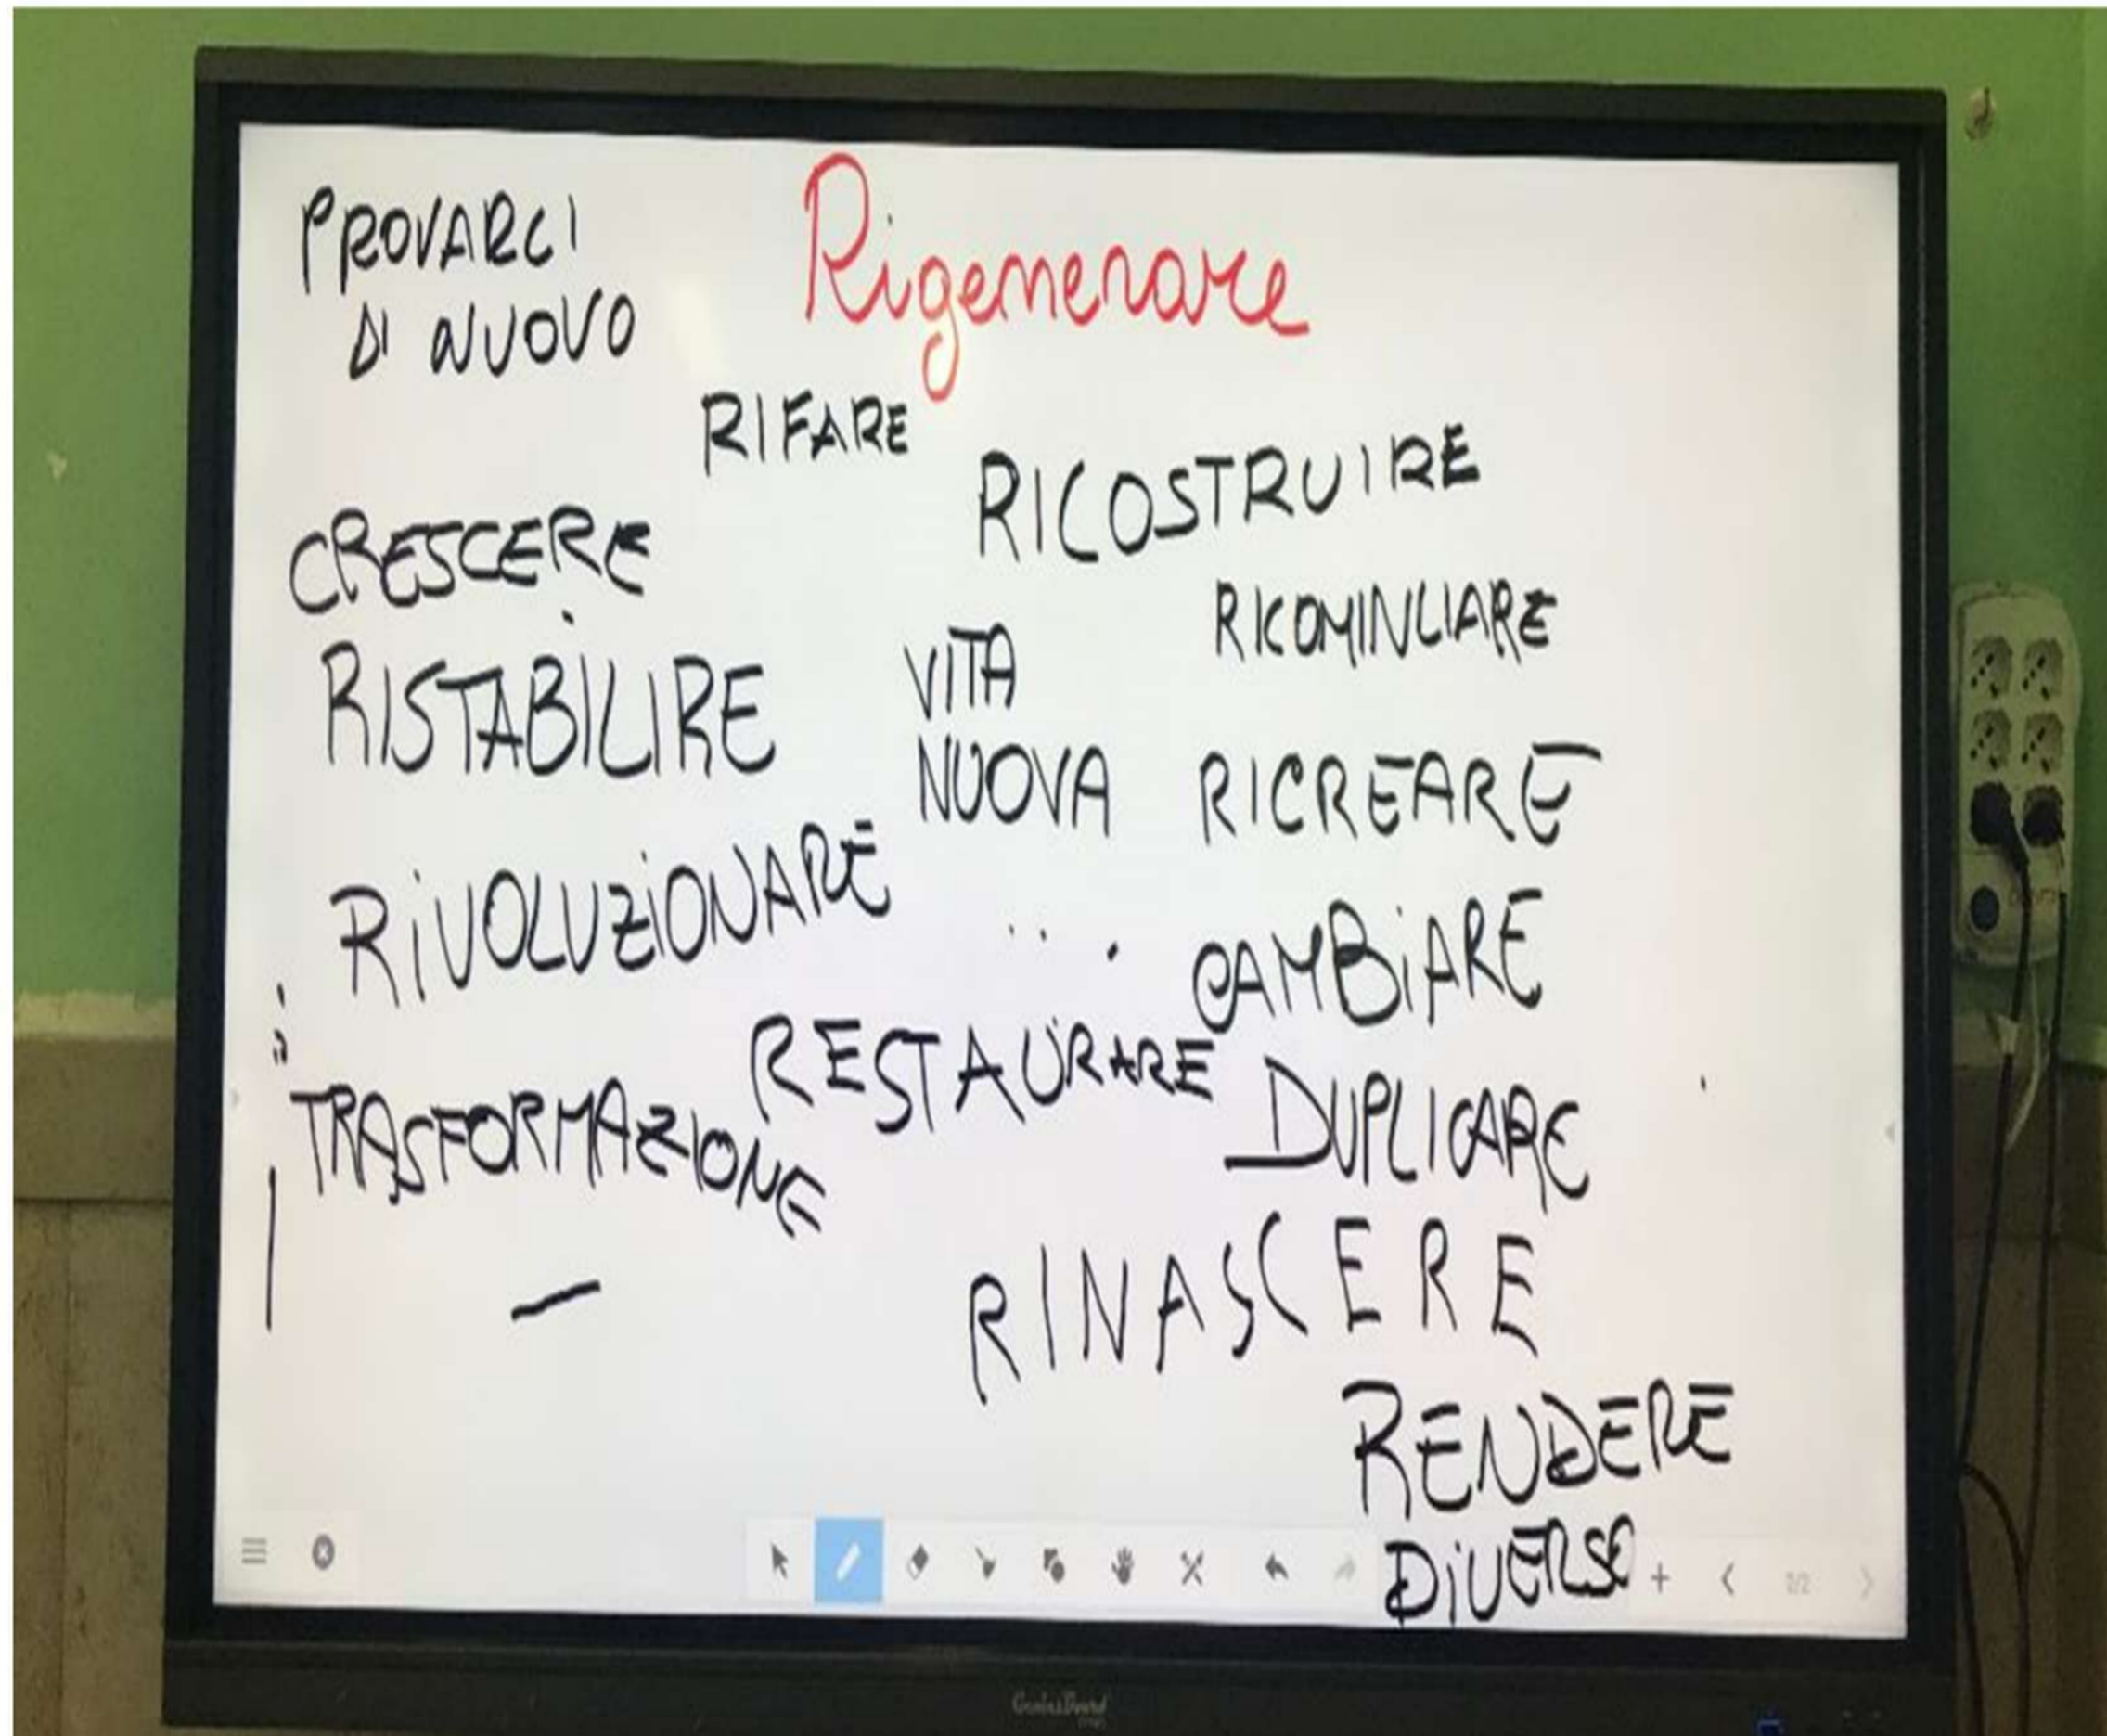 PROVARCI
DI NUOVO
Rigenerare
RIFARE
RICOSTRUIRE
CRESCERE
RICOMINCIARE
RISTABILIRE
VITA
NUOVA
RICREARE
RIVOLUZIONARE
CAMBIARE
RESTAURARE
TRASFORMAZIONE
DUPLICARE
RINASCERE
RENDERE
DIVERSO
2/2
GeniusBoard